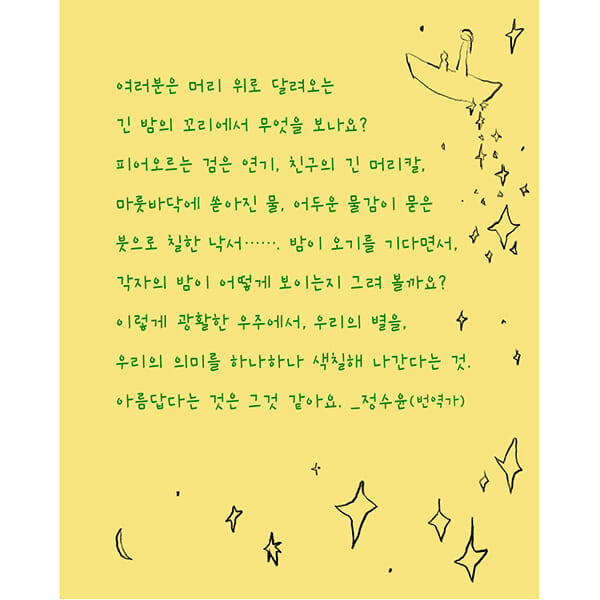 여러분은 머리 위로 달려오는
긴 밤의 꼬리에서 무엇을 보나요?
피어오르는 검은 연기, 친구의 긴 머리칼,
마룻바닥에 쏟아진 물, 어두운 물감이 묻은
붓으로 칠한 낙서……. 밤이 오기를 기다면서,
각자의 밤이 어떻게 보이는지 그려 볼까요?
이렇게 광활한 우주에서, 우리의 별을,
우리의 의미를 하나하나 색칠해 나간다는 것.
아름답다는 것은 그것 같아요. _정수윤(번역가)